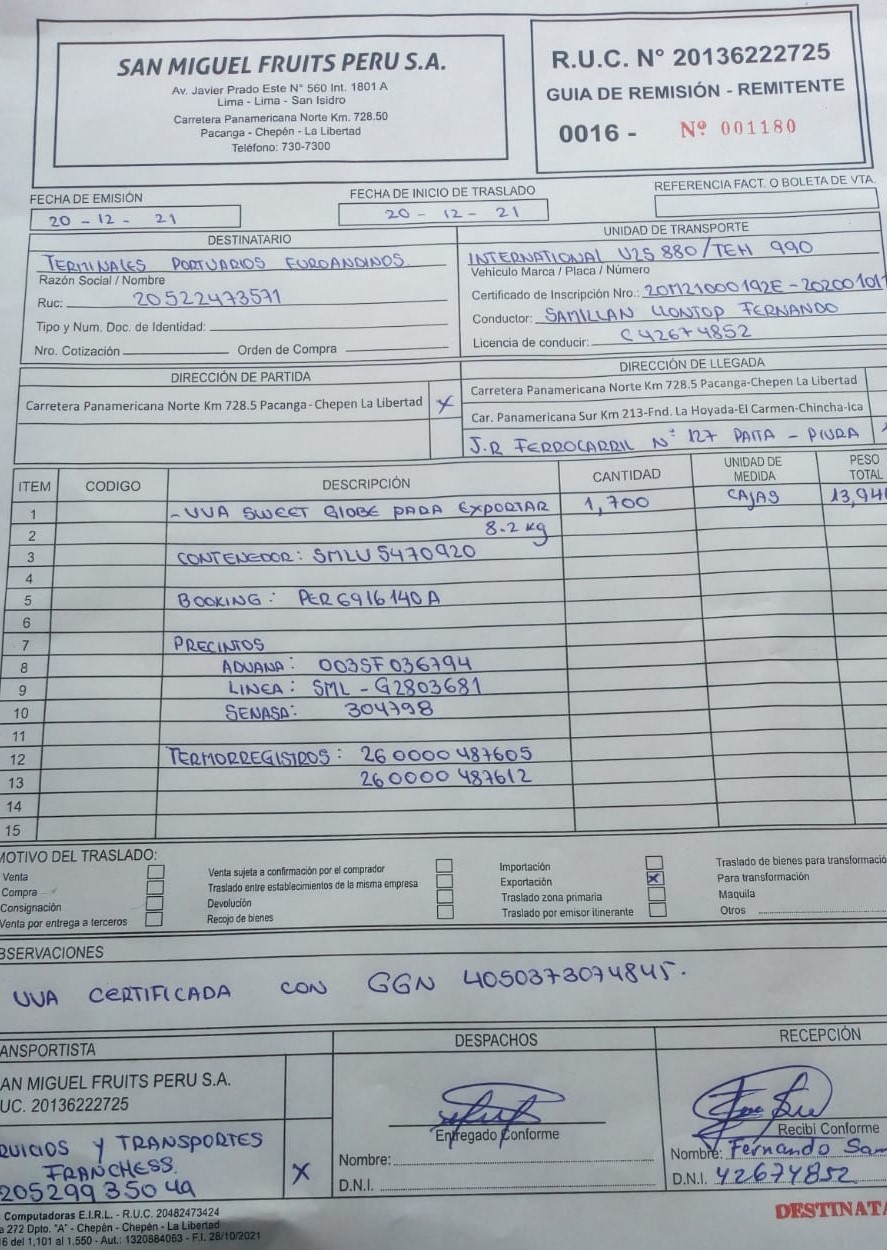 SAN MIGUEL FRUITS PERU S.A.
Av. Javier Prado Este N° 560 Int. 1801 A
Lima - Lima - San Isidro
Carretera Panamericana Norte Km. 728.50
Pacanga - Chepén - La Libertad
Teléfono: 730-7300
R.U.C. N° 20136222725
GUIA DE REMISIÓN - REMITENTE
0016 - Nº 001180
FECHA DE EMISIÓN
20 - 12 - 21
FECHA DE INICIO DE TRASLADO
20 - 12 - 21
REFERENCIA FACT. O BOLETA DE VTA.
DESTINATARIO
TERMINALES PORTUARIOS EUROANDINOS
Razón Social / Nombre
Ruc: 20522473571
Tipo y Num. Doc. de Identidad:
Nro. Cotización Orden de Compra
UNIDAD DE TRANSPORTE
INTERNATIONAL V2S 880/TEH 990
Vehiculo Marca / Placa / Número
Certificado de Inscripción Nro.: 20M21000192E - 20200101
Conductor: SAMILLAN LLONTOP FERNANDO
Licencia de conducir: C42674852
DIRECCIÓN DE PARTIDA
Carretera Panamericana Norte Km 728.5 Pacanga-Chepen La Libertad X
DIRECCIÓN DE LLEGADA
Carretera Panamericana Norte Km 728.5 Pacanga-Chepen La Libertad
Car. Panamericana Sur Km 213-Fnd. La Hoyada-El Carmen-Chincha-Ica
J.R FERROCARRIL N° 127 PAITA - PIURA
ITEM CODIGO DESCRIPCIÓN CANTIDAD UNIDAD DE MEDIDA PESO TOTAL
1 - UVA SWEET GLOBE PARA EXPORTAR 1,700 CAJAS 13,940
2 8.2 kg
3 CONTENEDOR: SMLU 5470920
4
5 BOOKING: PER6916140A
6
7 PRECINTOS
8 ADUANA: 003SF036794
9 LINEA: SML - G2803681
10 SENASA: 304798
11
12 TERMORREGISTROS: 260000487605
13 260000487612
14
15
MOTIVO DEL TRASLADO:
Venta
Compra
Consignación
Venta por entrega a terceros
Venta sujeta a confirmación por el comprador
Traslado entre establecimientos de la misma empresa
Devolución
Recojo de bienes
Importación
Exportación X
Traslado zona primaria
Traslado por emisor itinerante
Traslado de bienes para transformació
Para transformación
Maquila
Otros
BSERVACIONES
UVA CERTIFICADA CON GGN 4050373074845.
ANSPORTISTA
AN MIGUEL FRUITS PERU S.A.
UC. 20136222725
RVICIOS Y TRANSPORTES
FRANCHESS. X
20529935049
DESPACHOS
Entregado Conforme
Nombre:
D.N.I.
RECEPCIÓN
Recibi Conforme
Nombre: Fernando Sam
D.N.I. 42674852
Computadoras E.I.R.L. - R.U.C. 20482473424
a 272 Dpto. "A" - Chepén - Chepén - La Libertad
6 del 1,101 al 1,550 - Aut.: 1320884063 - F.I. 28/10/2021
DESTINATA